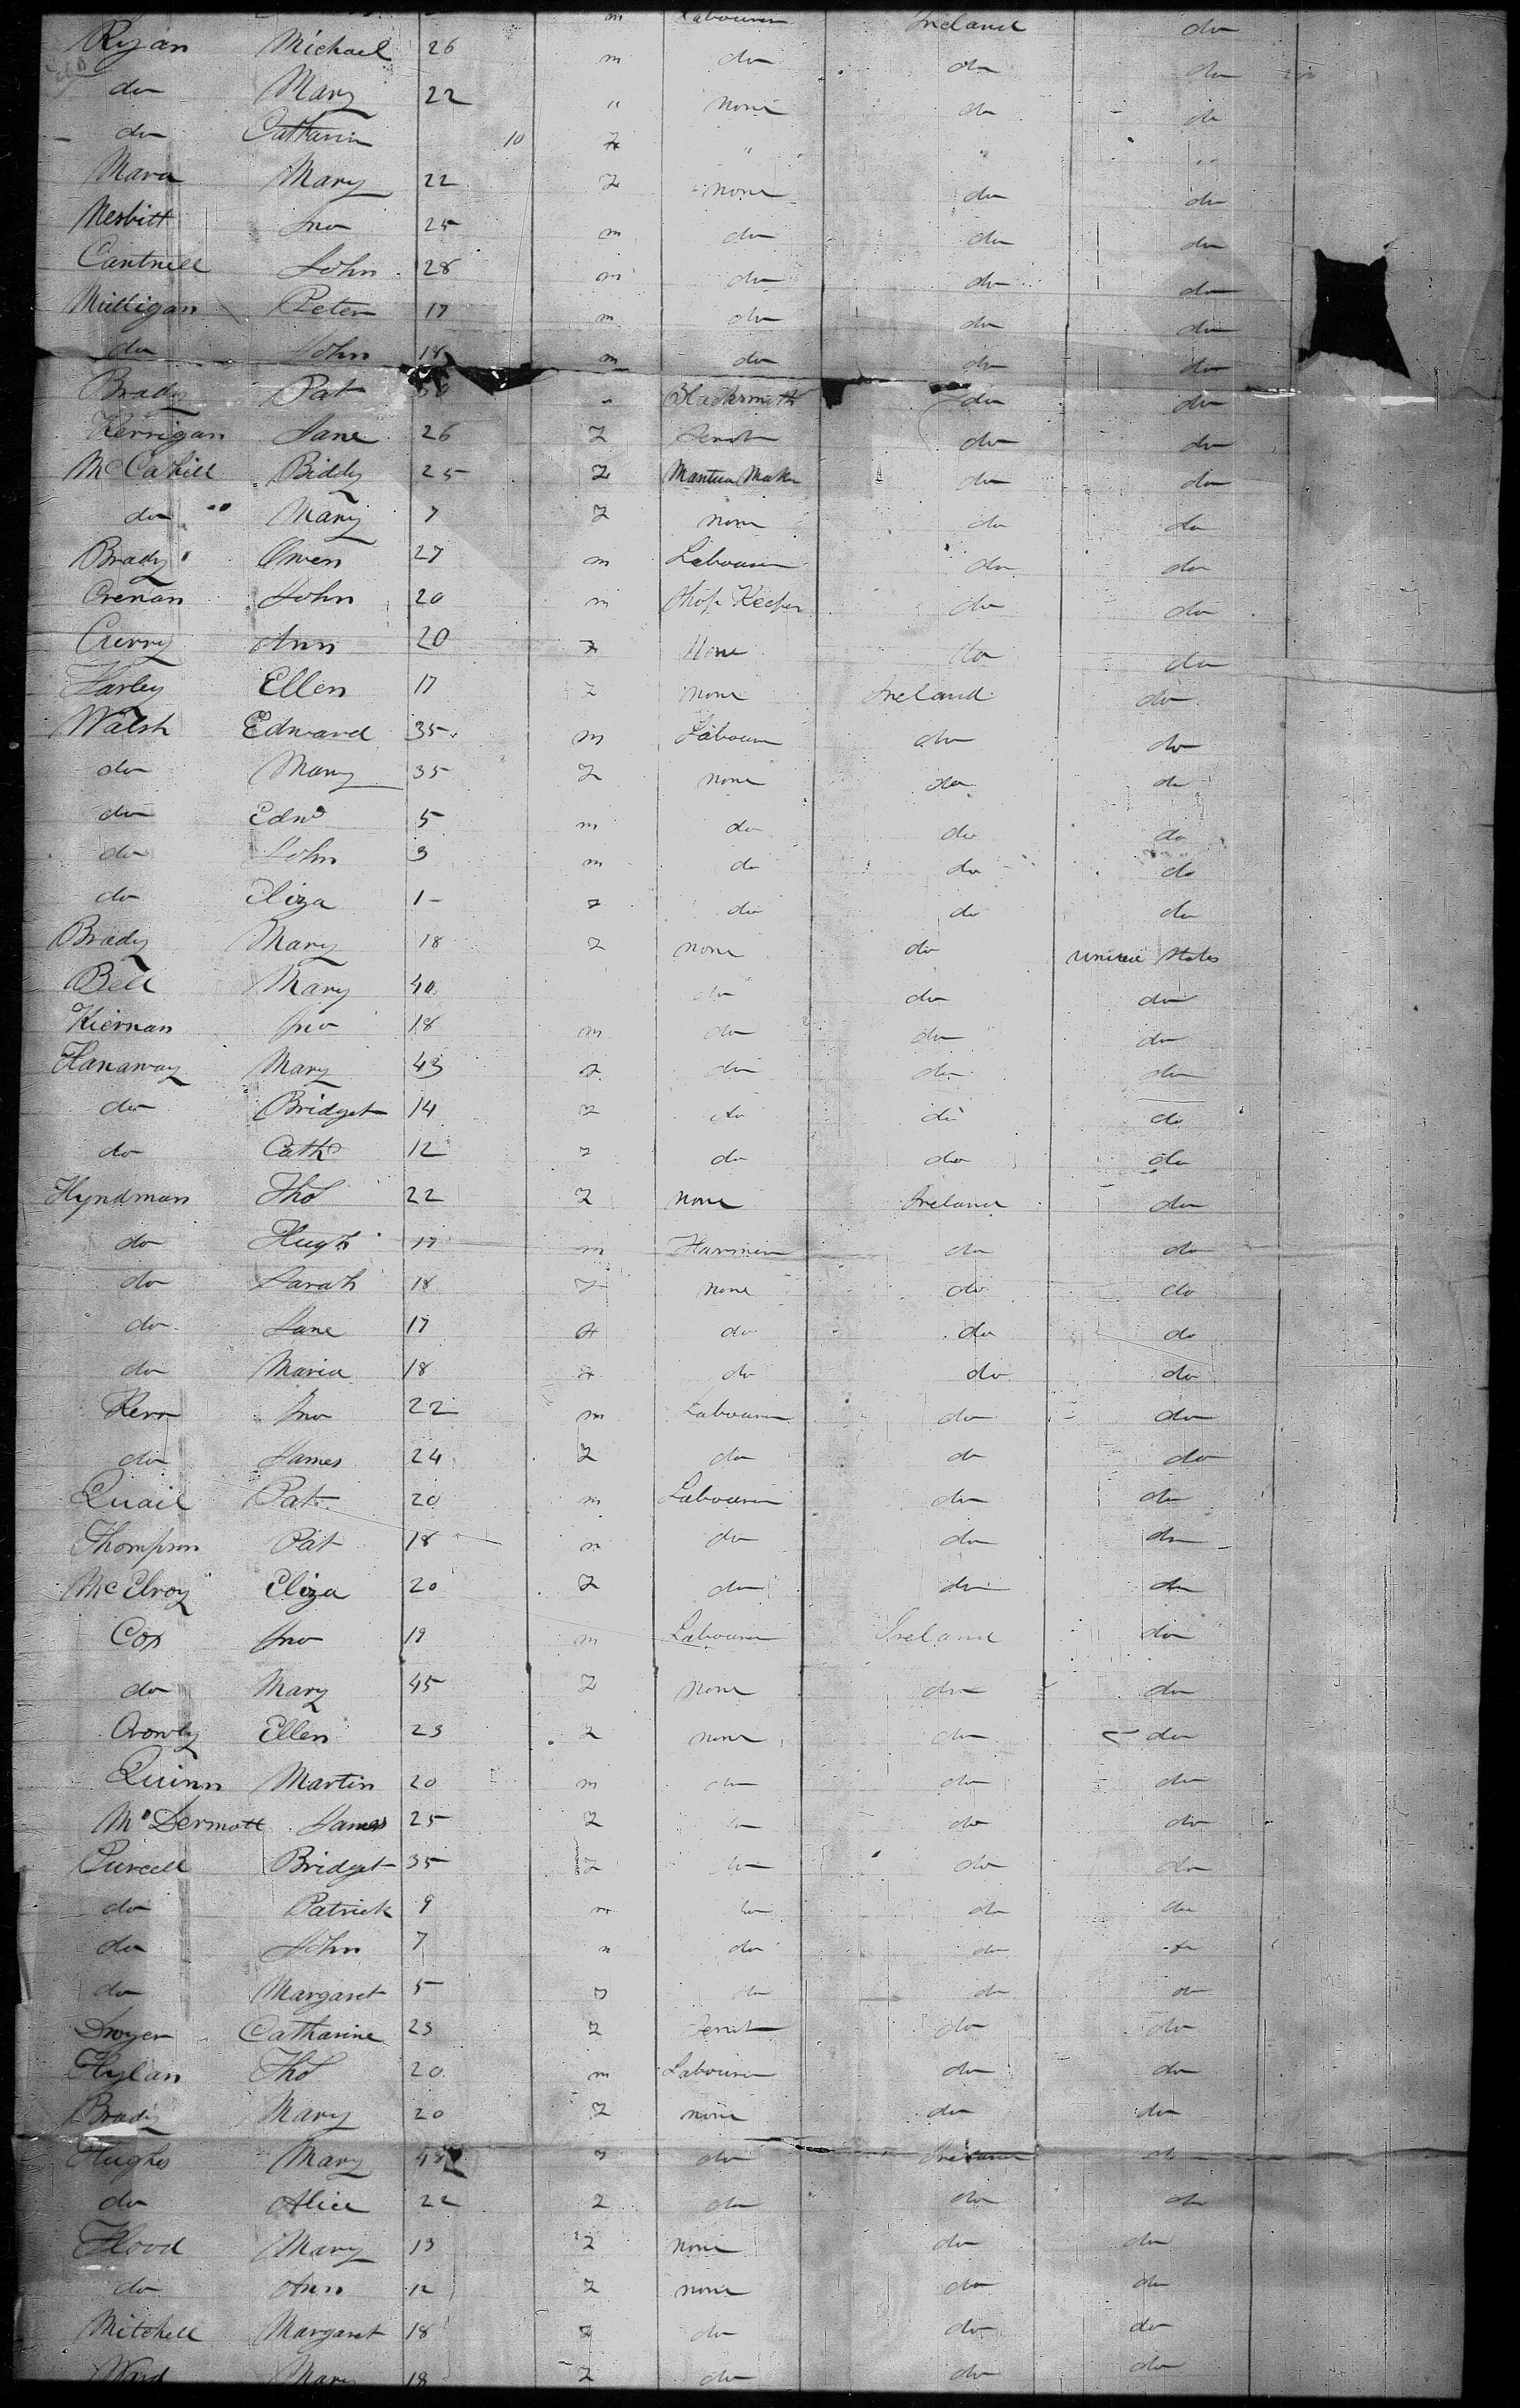 m Labourer Ireland do
Ryan Michael 26 m do do do
do Mary 22 " none do do
do Catharin 10 f " " "
Mara Mary 22 f none do do
Nesbitt Jno 25 m do do do
Cantrell John 28 m do do do
Milligan Peter 17 m do do do
do John 18 m do do do
Brady Pat " Blacksmith do do
Kerrigan Jane 26 f Servt do do
McCahill Biddy 25 f Mantua Maker do do
do " Mary 7 f none do do
Brady Owen 27 m Labourer do do
Crenan John 20 m Shop Keeper do do
Curry Ann 20 f None do do
Farley Ellen 17 f none Ireland do
Walsh Edward 35 m Labourer do do
do Mary 35 f none do do
do Edwd 5 m do do do
do John 3 m do do do
do Eliza 1 f do do do
Brady Mary 18 f none do United States
Bell Mary 40 do do do
Kiernan Jno 18 m do do do
Hanaway Mary 43 f do do do
do Bridget 14 f do do do
do Cath 12 f do do do
Hyndman Thos 22 f none Ireland do
do Hugh 17 m Farmer do do
do Sarah 18 f none do do
do Jane 17 f do do do
do Maria 18 f do do do
Kerr Jno 22 m Labourer do do
do James 24 f do do do
Quail Pat 20 m Labourer do do
Thompson Pat 18 m do do do
McElroy Eliza 20 f do do do
Cox Jno 19 m Labourer Ireland do
do Mary 45 f none do do
Crowly Ellen 23 f none do do
Quinn Martin 20 m do do do
McDermott James 25 f do do do
Purcell Bridget 35 f do do do
do Patrick 9 m do do do
do John 7 m do do do
do Margaret 5 f do do do
Dwyer Catharine 23 f Servt do do
Hylan Thos 20 m Labourer do do
Brady Mary 20 f none do do
Hughes Mary f do Ireland do
do Alice 22 f do do do
Flood Mary 13 f none do do
do Ann 12 f none do do
Mitchell Margaret 18 f do do do
Ward Mary 18 f do do do